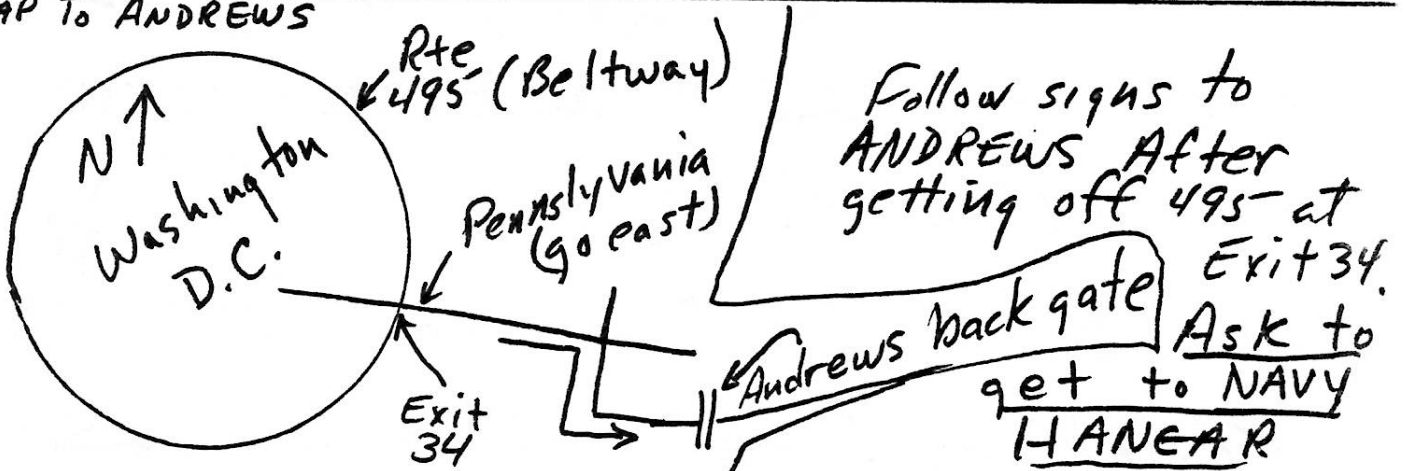 AP To ANDREWS
Rte
495 (Beltway)
N
Washington
D.C.
Pennslyvania
(go east)
Exit
34
Andrews back gate
Follow signs to
ANDREWS After
getting off 495 at
Exit 34.
Ask to
get to NAVY
HANEAR